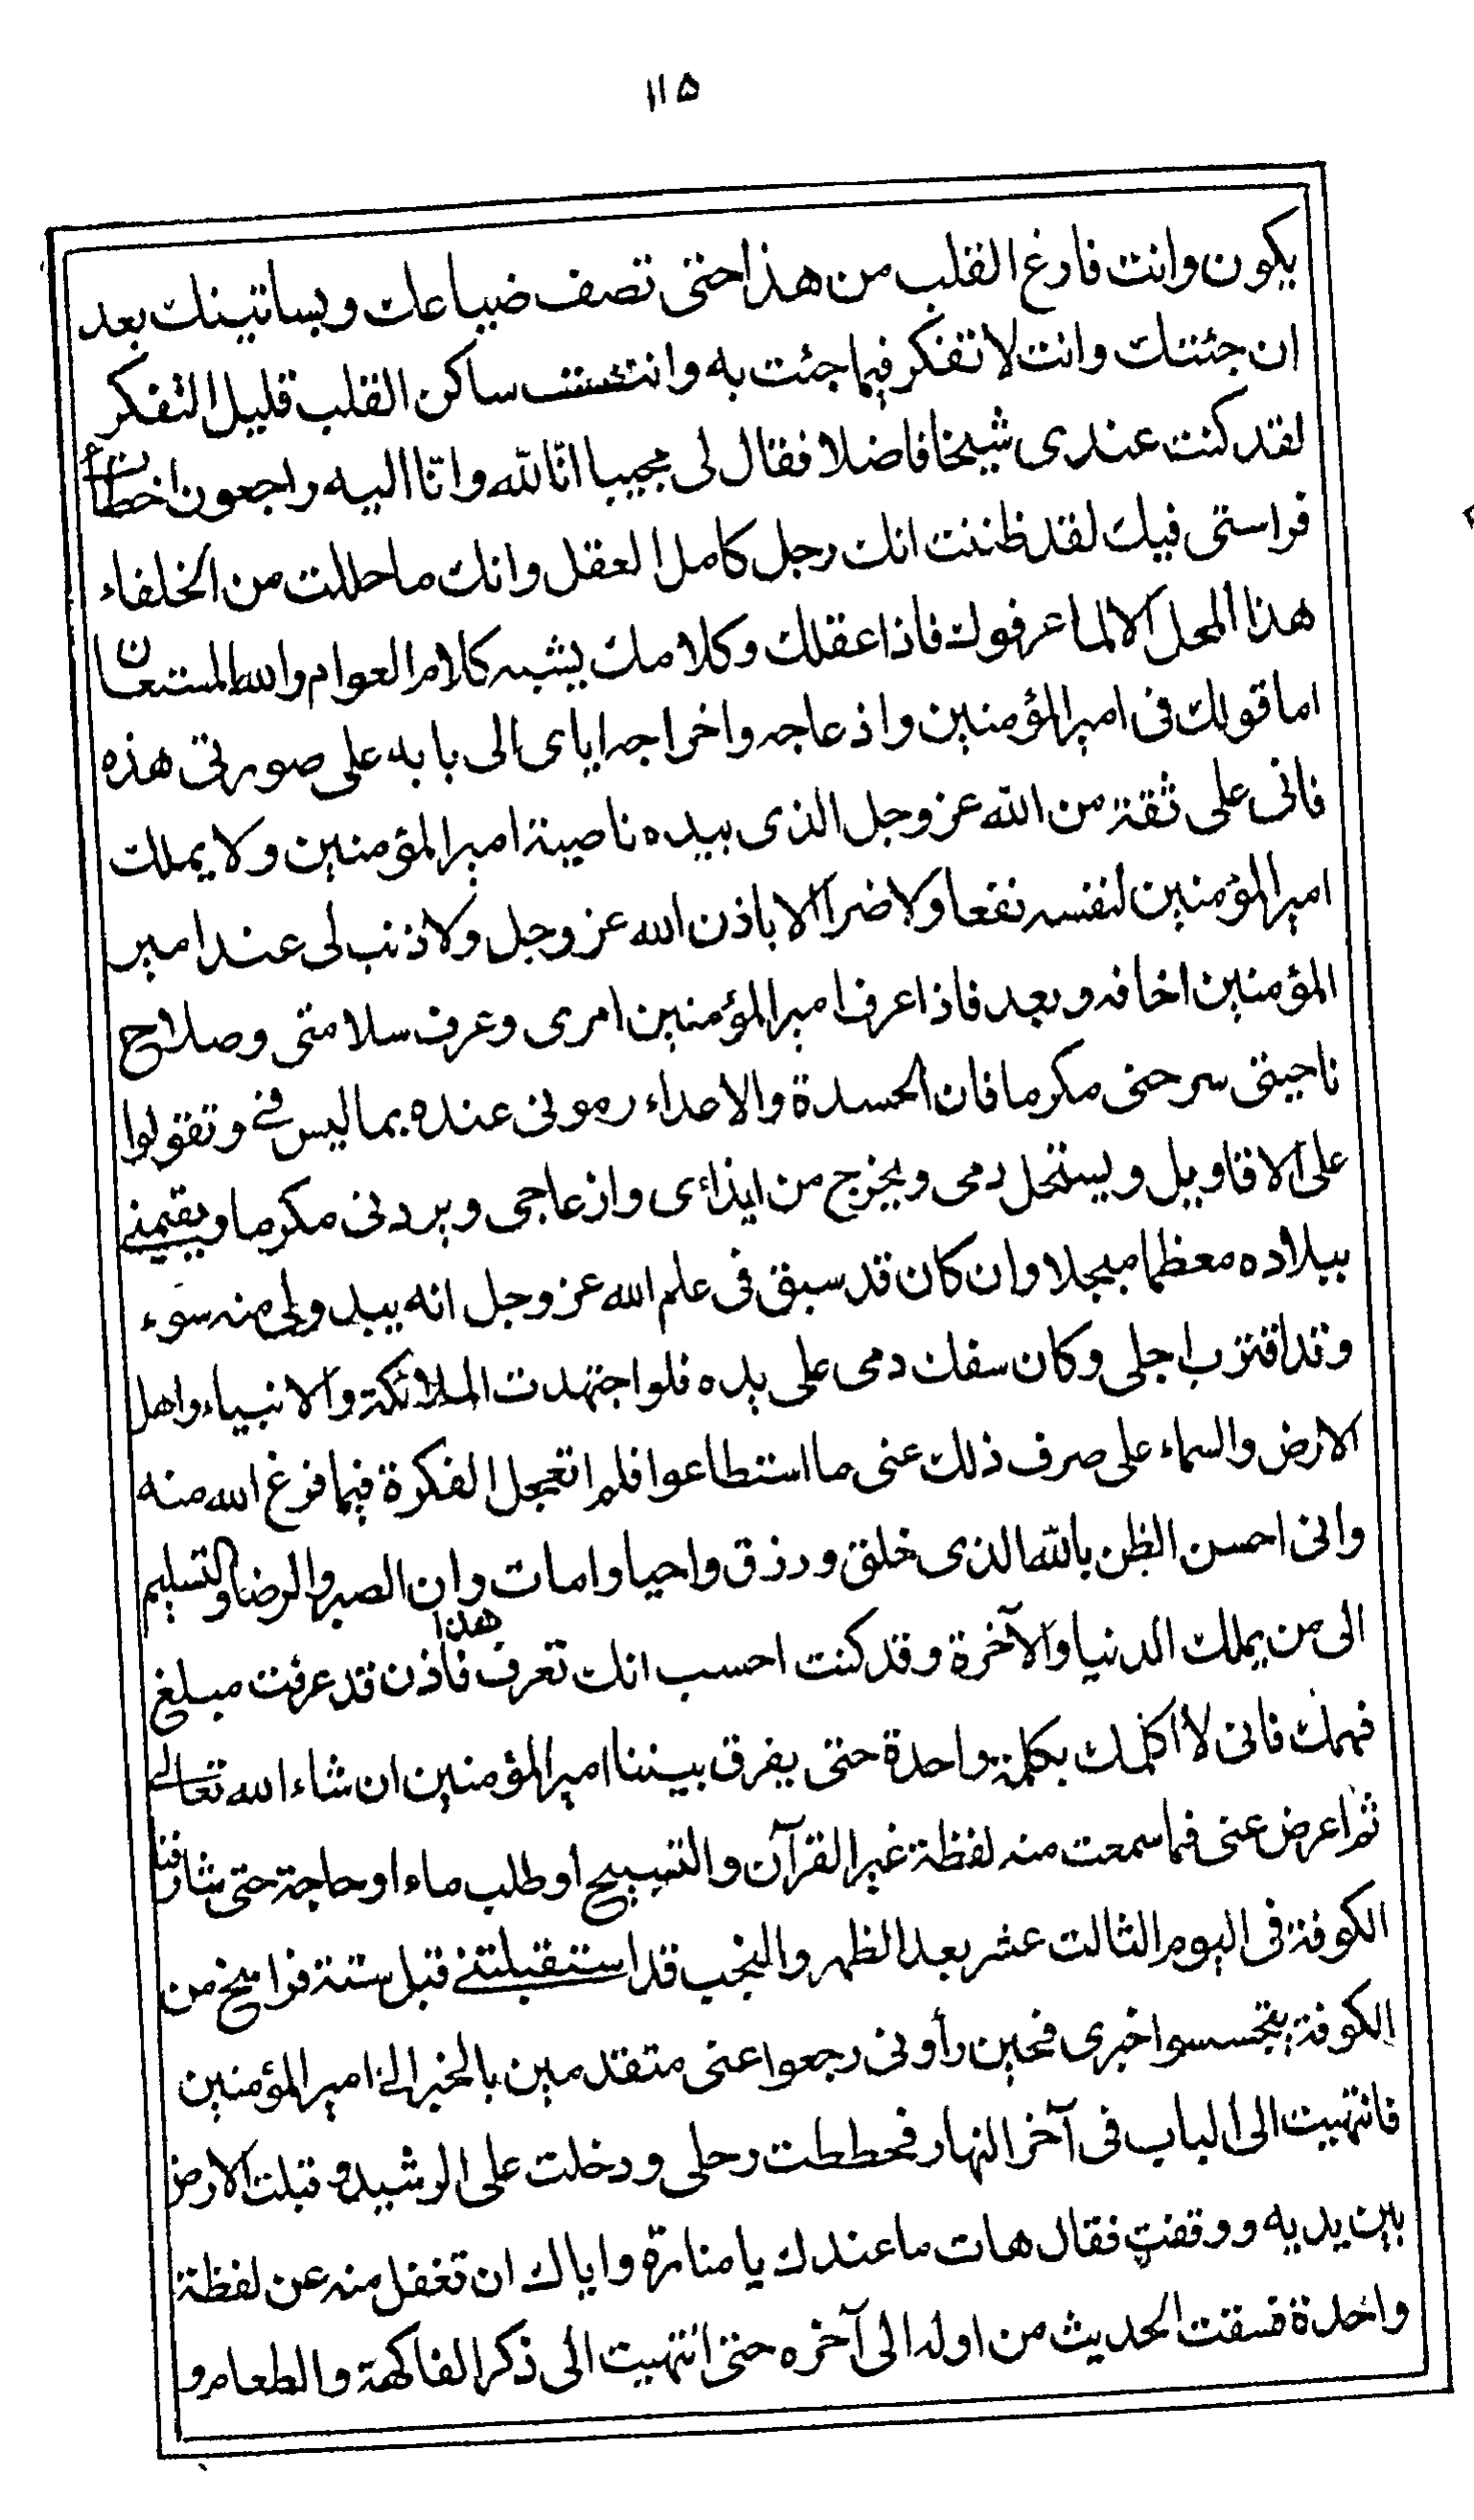 ١١۵
يكون وانت فارغ القلب من هذا حتى تصف ضياعك وبساتينك بعد
ان جئتك وانت لا تفكر فيما جئت به وانت ساكن القلب قليل التفكر
لقد كنت عندى شيخا فاضلا فقال لى مجيبا انّا لله وانّا اليه راجعون اخطأت
فراستى فيك لقد ظننت انك رجل كامل العقل وانك ما حللت من الخلفاء
هذا المحل الا لما عرفوك فاذا عقلك وكلامك يشبه كلام العوام والله المستعان
اما قولك فى امير المؤمنين واذعاجه واخراجه اياى الى بابه على صورتى هذه
فانى على ثقة من الله عز وجل الذى بيده ناصية امير المؤمنين ولا يملك
امير المؤمنين لنفسه نفعا ولا ضرا الا باذن الله عز وجل ولا ذنب لى عند امير
المؤمنين اخافه وبعد فاذا عرف امير المؤمنين امرى وعرف سلامتى وصلاح
ناحيتى سرحنى مكرما فان الحسدة والاعداء رمونى عنده بما ليس فى وتقولوا
على الاقاويل ويستحل دمى ويخرج من ايذائى وازعاجى ويردنى مكرما ويقيمنى
ببلاده معظما مبجلا وان كان قد سبق فى علم الله عز وجل انه يبدو لى منه سوء
وقد اقترب اجلى وكان سفك دمى على يده فلو اجتهدت الملائكة والانبياء واهل
الارض والسماء على صرف ذلك عنى ما استطاعوا فلم اتعجل الفكرة فيما فرغ الله منه
وانى احسن الظن بالله الذى خلق ورزق واحيا وامات وان الصبر والرضا والتسليم
الى من يملك الدنيا والآخرة وقد كنت احسب انك تعرف هذا فاذن قد عرفت مبلغ
فهمك فانى لا اكلمك بكلمة واحدة حتى يفرق بيننا امير المؤمنين ان شاء الله تعالى
ثم اعرض عنى فما سمعت منه لفظة غير القرآن والتسبيح او طلب ماء او حاجة حتى شارفنا
الكوفة فى اليوم الثالث عشر بعد الظهر والنجب قد استقبلتنى قبل ستة فراسخ من
الكوفة يتجسسوا خبرى فحين رأونى رجعوا عنى متقدمين بالخبر الى امير المؤمنين
فانتهيت الى الباب فى آخر النهار فحططت رحلى ودخلت على الرشيد وقبلت الارض
بين يديه ووقفت فقال هات ما عندك يا منارة واياك ان تغفل منه عن لفظة
واحدة فسقت الحديث من اوله الى آخره حتى انتهيت الى ذكر الفاكهة والطعام و